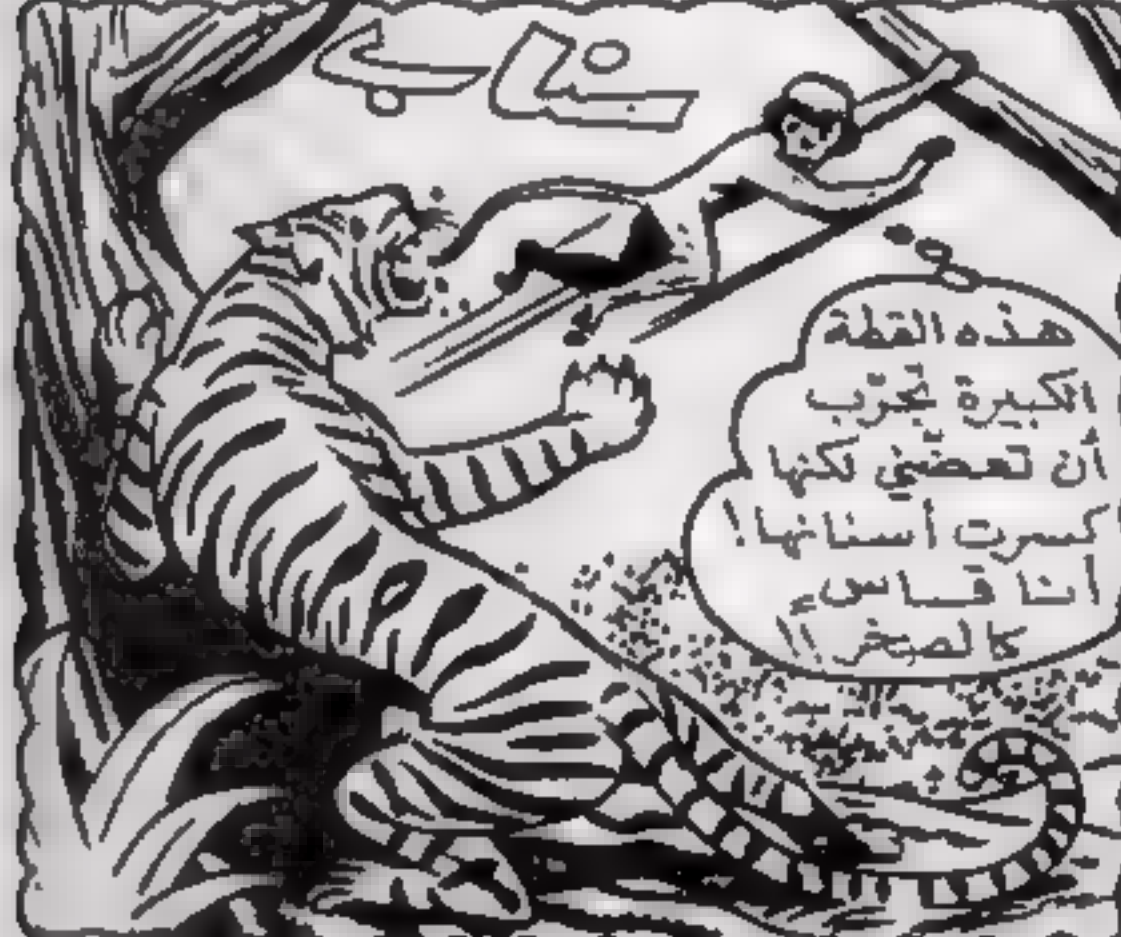 هذه القطة
الكبيرة تجرّب
أن تعضّني لكنها
كسرت أسنانها!
أنا قاسٍ
كالصخر!!